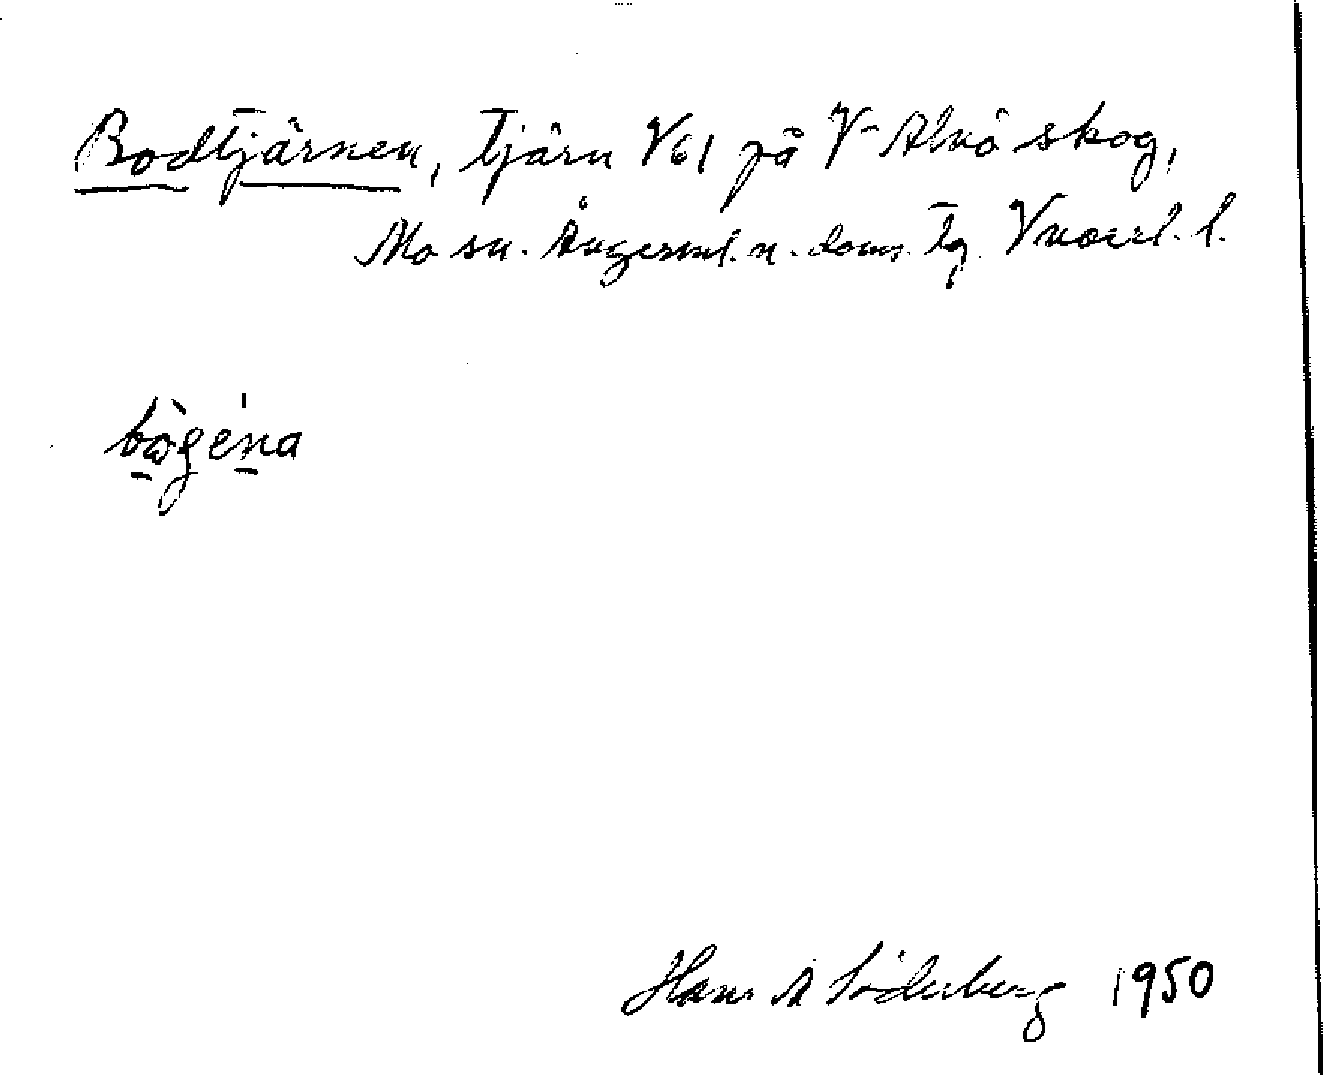 Bodtjärnen, Tjärn V61 på V-Alnö skog,
Mo sn. Ångerml. n. doms. Tg. Vnorrl. l.
bògéna
Hans A Söderberg 1950